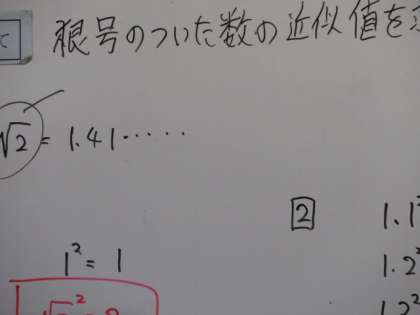 根号のついた数の近似値を
√2 = 1.41・・・・・
2
1² = 1
1.1²
1.2²